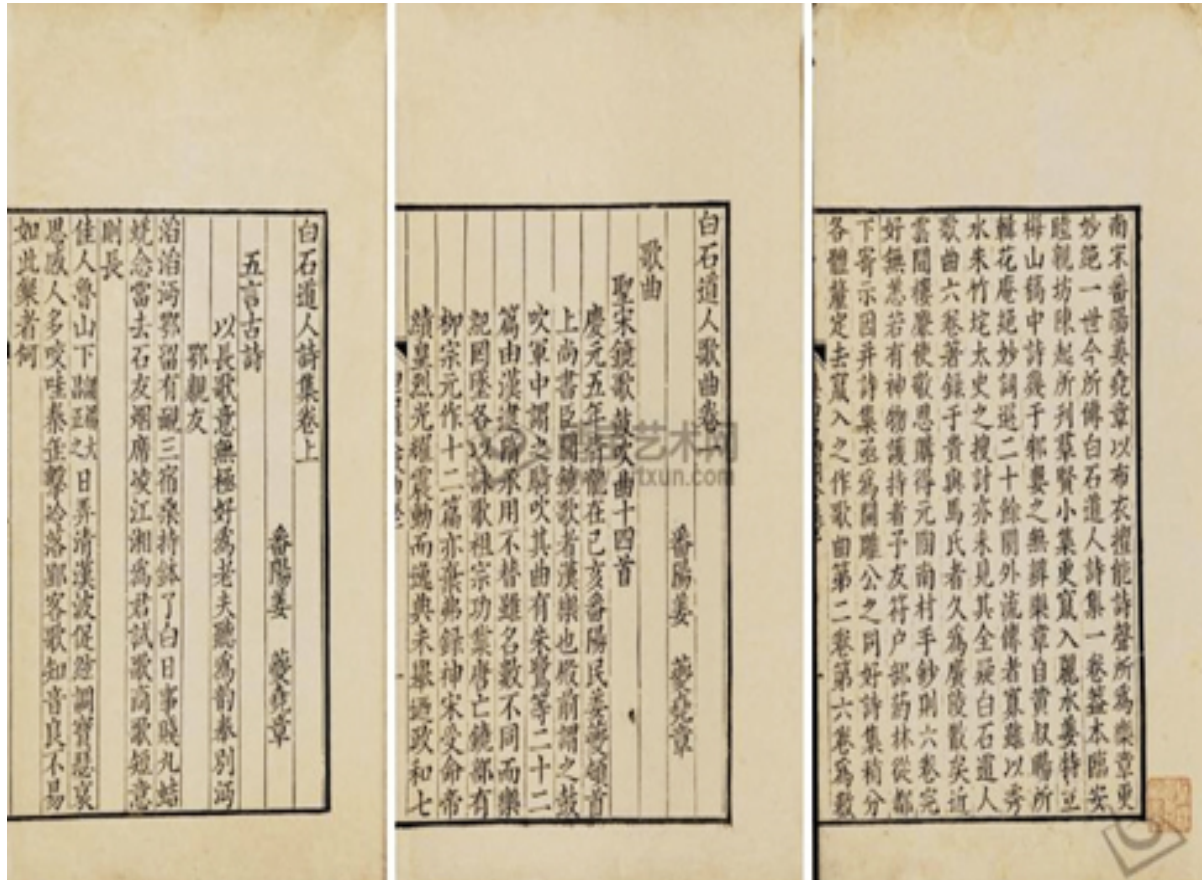 南宋番陽姜堯章以布衣擅能詩聲所為樂章更
妙絕一世今所傳白石道人詩集一卷蓋本臨安
睦親坊陳起所刊羣賢小集更竄入麗水姜特立
梅山稿中詩幾于邾婁之無辨樂章自黃叔暘所
輯花庵絕妙詞選二十餘闋外流傳者寡雖以秀
水朱竹垞太史之搜討亦未見其全疑白石道人
歌曲六卷著錄于貴與馬氏者久為廣陵散矣近
雲間樓廉使敬思購得元陶南村手鈔則六卷完
好無恙若有神物護持者予友符户部葯林從都
下寄示因并詩集亟為開雕公之同好詩集稍分
各體釐定去竄入之作歌曲第二卷第六卷為數
白石道人歌曲卷一
番陽姜 夔堯章
歌曲
聖宋鐃歌鼓吹曲十四首
慶元五年青龍在己亥番陽民姜夔頓首
上尚書臣聞鐃歌者漢樂也殿前謂之鼓
吹軍中謂之騎吹其曲有朱鷺等二十二
篇由漢逮隋承用不替雖名數不同而樂
紀罔墜各以詠歌祖宗功業唐亡鐃部有
柳宗元作十二篇亦棄弗錄神宋受命帝
績皇烈光耀震動而逸典未舉迺政和七
白石道人詩集卷上
番陽姜 夔堯章
五言古詩
以長歌意無極好為老夫聽為韵奉別沔
鄂親友
滔滔沔鄂留有靦三宿桑持鉢了白日事賤丸蛣
蜣念當去石友烟席凌江湘為君試歌商歌短意
則長
佳人魯山下 日弄清漢波促絃調寶瑟哀
思感人多咬哇秦缶擊冷落郢客歌知音良不易
如此粲者何